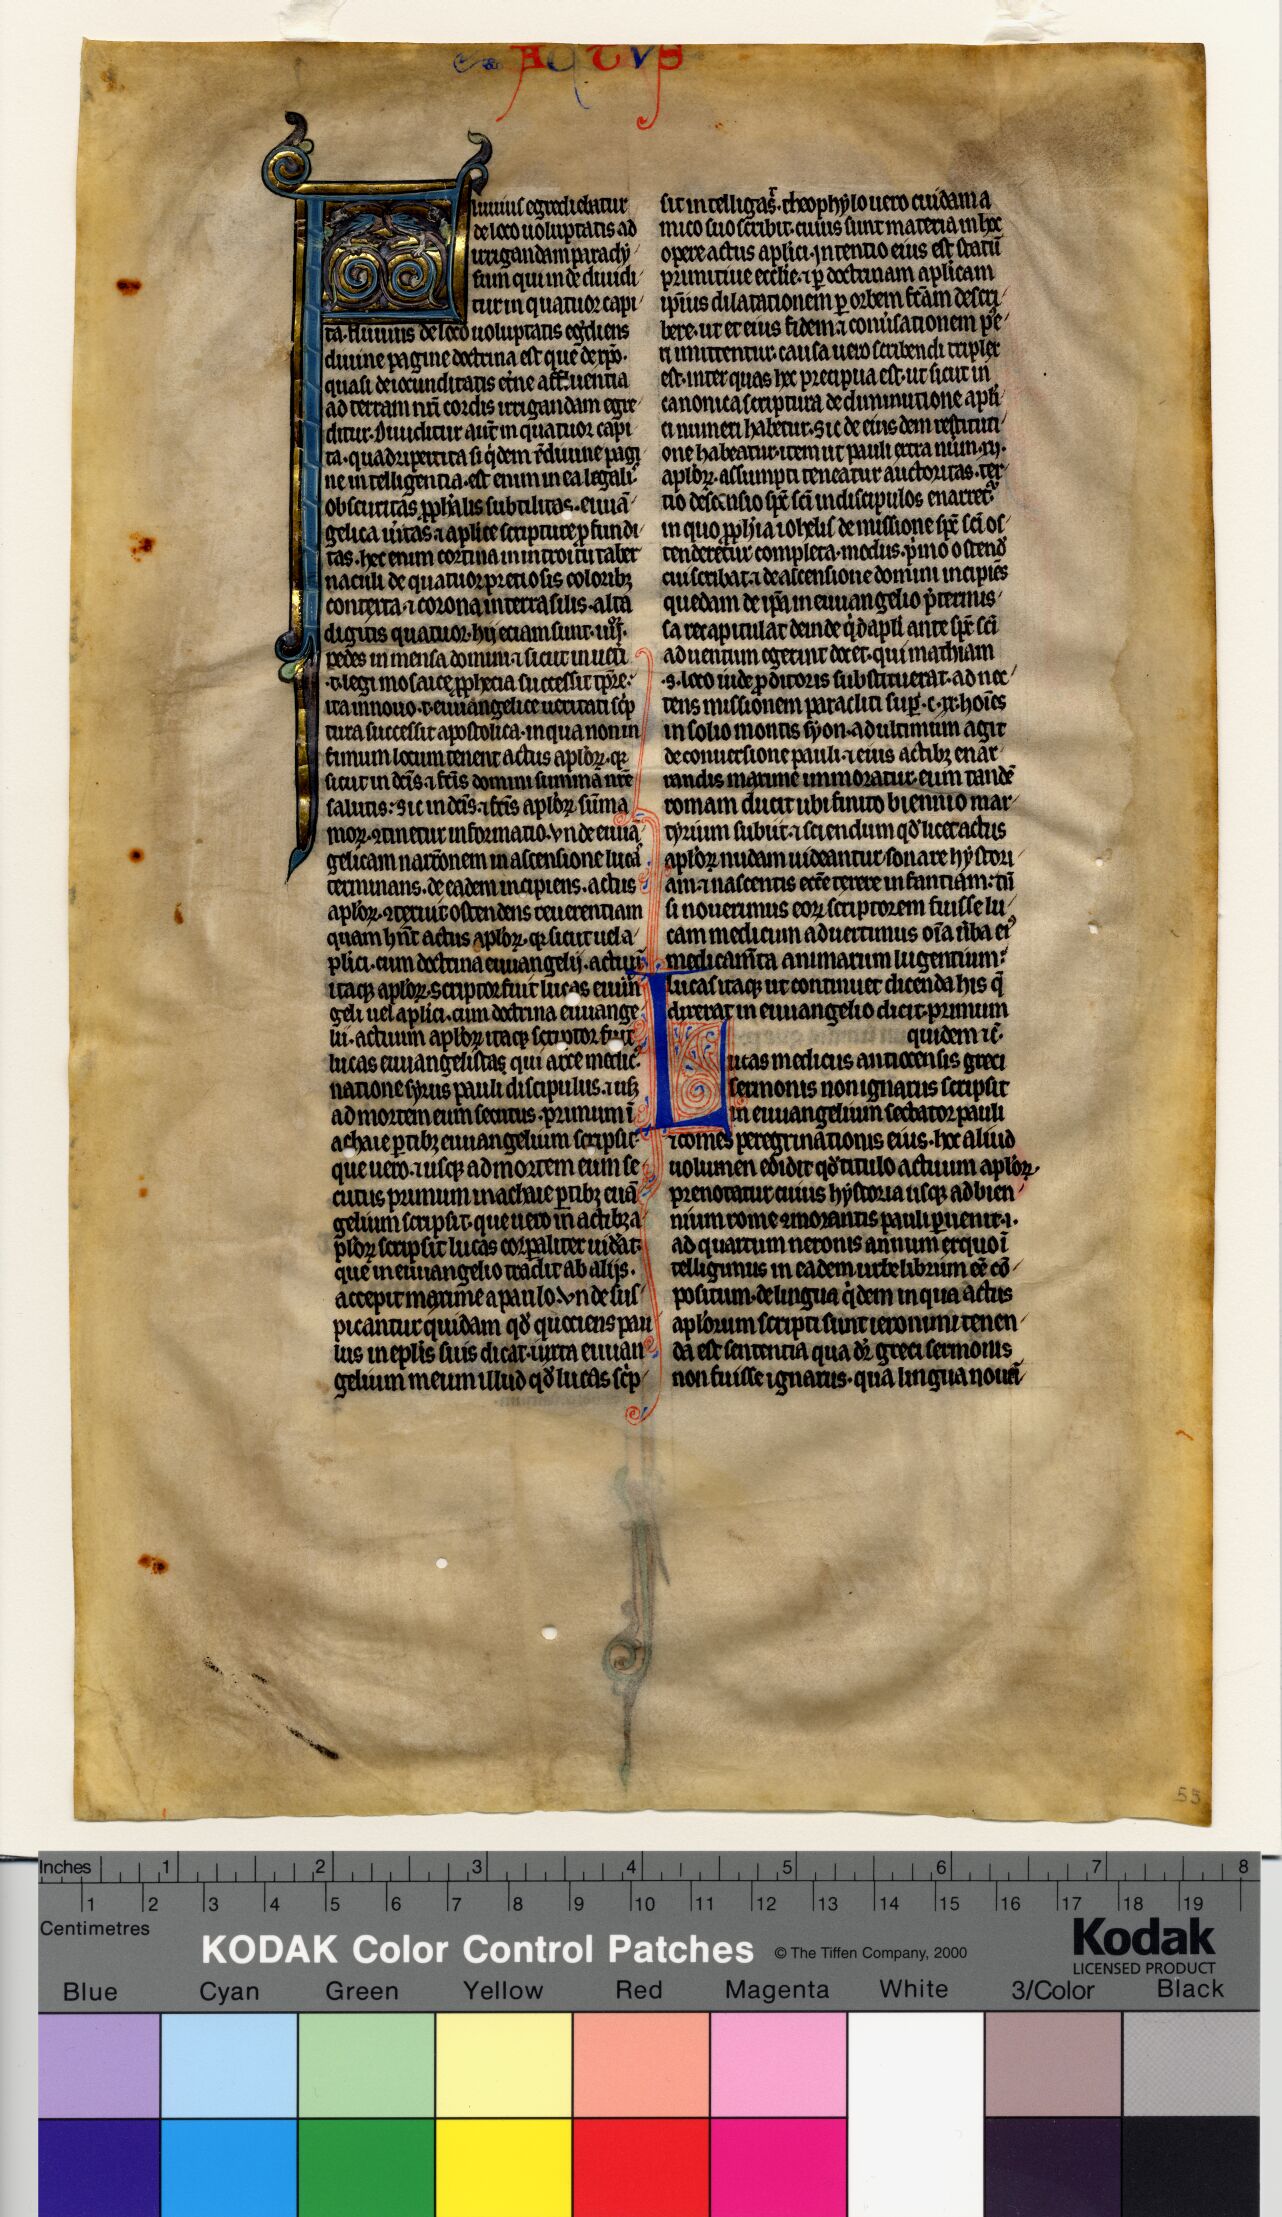 ACTVS
luuius egrediebatur
de loco uoluptatis ad
irrigandam parady
sum qui inde diuidi
tur in quatuor capi
ta. fluuius de loco uoluptatis eg̃diens
diuine pagine doctrina est que de xp̃o.
quasi de iocunditatis et̃ne affluentia
ad terram nr̃i cordis irrigandam egre
ditur. Diuiditur aut̃ in quatuor capi
ta. quadripertita siq̇dem
ne intelligentia. est enim in ea legalis
obscuritas, ꝓph̃alis subtilitas. euuã
gelica ũitas. ⁊ aplĩce scripture ꝓfundi
tas. hec enim cortina in introitu taber
naculi de quatuor pretiosis coloribꝫ
contexta. ⁊ corona interrasilis. alta
digitis quatuor. hij eciam sunt. iiijͦʳ.
pedes in mensa domini. ⁊ sicut in ueti
.t. legi mosaice ꝓphecia successit
ita in nouo .t. euuangelice ueritati sc̃p
tura successit apostolica. in qua non in
fimum locum tenent actus aplõꝝ. qꝛ
sicut in dc̃is. ⁊ fc̃is domini summa nr̃e
salutis: sic in dc̃is. ⁊ fc̃is aplõꝝ sũma
moꝝ. ꝯtinetur informatio. vnde euuã
gelicam narr̃onem in ascensione lucas
terminans. de eadem incipiens. actus
aplõꝝ. ꝯtexuit ostendens reuerentiam
quam hñt actus aplõꝝ. qꝛ sicut uel a
plici. cum doctrina euuangelij. actuũ
itaqꝫ aplõꝝ. scriptor fuit lucas euuñ
geli uel aplici. cum doctrina euuange
lii. actuum aplõꝝ itaqꝫ scriptor fuit
lucas euuangelistas qui arte medic⁹
natione syrus pauli discipulus. ⁊ usqꝫ
ad mortem eum secutus. primum ĩ
achaie ꝑtibꝫ euuangelium scripsit
que uero. ⁊ usqꝫ ad mortem eum se
cutus primum in achaie ꝑtibꝫ euã
gelium scripsit. que uero in actibꝫ a
plõꝝ scripsit lucas corꝑaliter uiderat.
que in euuangelio tradit ab alijs.
accepit maxime a paulo. vnde sus
picantur quidam qd̃ quociens pau
lus in eplĩs suis dicat. iuxta euuan
gelium meum illud qd̃ lucas sc̃p
sit intelligat̃. theophylo uero cuidam a
mico suo scribit. cuius sunt materia in hoc
opere actus aplĩci. intentio eius est statũ
primitiue ecclie. ⁊ ꝑ doctrinam aplĩcam
ip̃ius dilatationem ꝑ orbem fc̃am descri
bere. ut et eius fidem ⁊ conũsationem pe
ti imittentur. causa uero scribendi triplex
est. inter quas hec precipua est. ut sicut in
canonica scriptura de diminutione apli
ci numeri habetur. sic de eius dem restituti
one habeatur. item ut pauli extra nũm. xij.
aplõꝝ. assumpti teneatur auctoritas. ter
tio descensio sp̃s sc̃i in discipulos enarret.
in quo ꝓph̃ia iohelis de missione sp̃s sc̃i os
tenderetur completa. modus. p̃imo ostend̃
cui scribat. ⁊ de ascensione domini incipiẽs
quedam de ip̃a in euuangelio p̃termis
sa recapitulat deinde q̇d apl̃i ante sp̃s sc̃i
aduentum egerint docet. qui mathiam
.s. loco iude ꝓditoris substituerat. ad nec
tens missionem paracliti sup̃ .c. xx. hoĩes
in solio montis syon. ad ultimum agit
de conuersione pauli. ⁊ eius actibꝫ enar
randis maxime immoratur. eum tandẽ
romam ducit ubi finito biennio mar
tyrium subiit. ⁊ sciendum qd̃ licet actus
aplõꝝ nudam uideantur sonare hystori
am. ⁊ nascentis ecc̃e texere infantiam: tñ
si nouerimus eoꝝ scriptorem fuisse lu
cam medicum aduertimus oĩa ũba ei⁹
medicam̃ta animarum lugentium:
lucas itaqꝫ ut continuet dicenda his q̃
dixerat in euuangelio dicit. primum
quidem ⁊c̃.
Lucas medicus antiocensis greci
sermonis non ignarus scripsit
in euuangelium sectator pauli
⁊ comes peregrinationis eius. hoc aliud
uolumen edidit qd̃ titulo actuum aplõꝝ.
prenotatur cuius hystoria usqꝫ ad bien
nium rome ꝯmorantis pauli ꝑuenit .i.
ad quartum neronis annum ex quo ĩ
telligimus in eadem urbe librum eẽ cõ
positum. de lingua q̇dem in qua actus
aplõrum scripti sunt ieronimi tenen
da est sententia qua dr̃ greci sermonis
non fuisse ignarus. qua lingua nouẽ
55
Inches 1 2 3 4 5 6 7 8
1 2 3 4 5 6 7 8 9 10 11 12 13 14 15 16 17 18 19
Centimetres
KODAK Color Control Patches © The Tiffen Company, 2000 Kodak
LICENSED PRODUCT
Blue Cyan Green Yellow Red Magenta White 3/Color Black